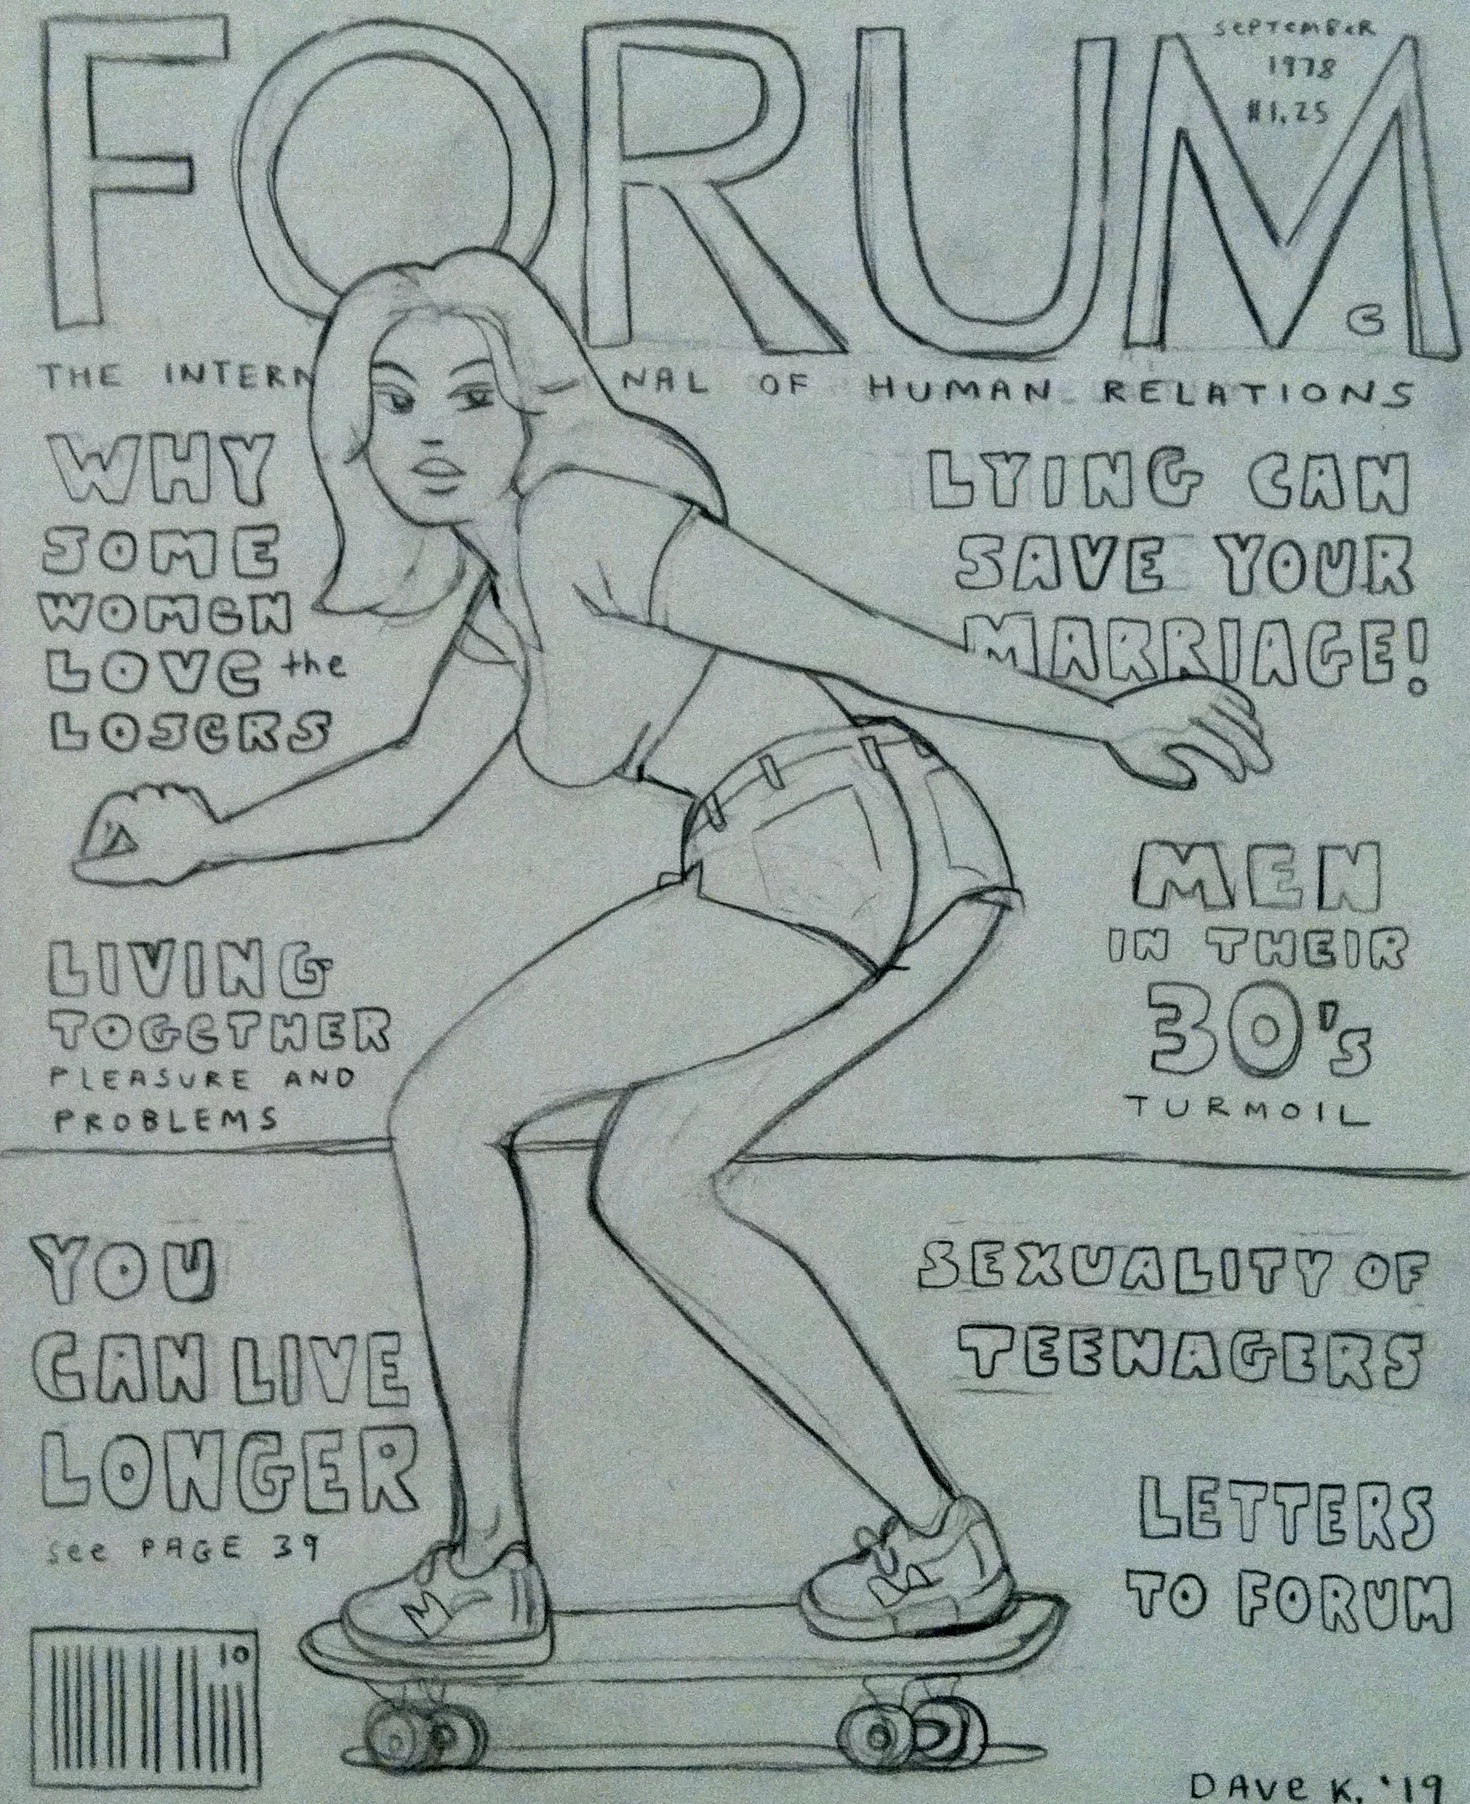 FORUM
SEPTEMBER
1978
$1.25
THE INTERN NAL OF HUMAN RELATIONS
WHY
SOME
WOMEN
LOVE the
LOSERS
LYING CAN
SAVE YOUR
MARRIAGE!
MEN
IN THEIR
30's
TURMOIL
LIVING
TOGETHER
PLEASURE AND
PROBLEMS
YOU
CAN LIVE
LONGER
see PAGE 39
SEXUALITY OF
TEENAGERS
LETTERS
TO FORUM
M
M
10
DAVE K. '19